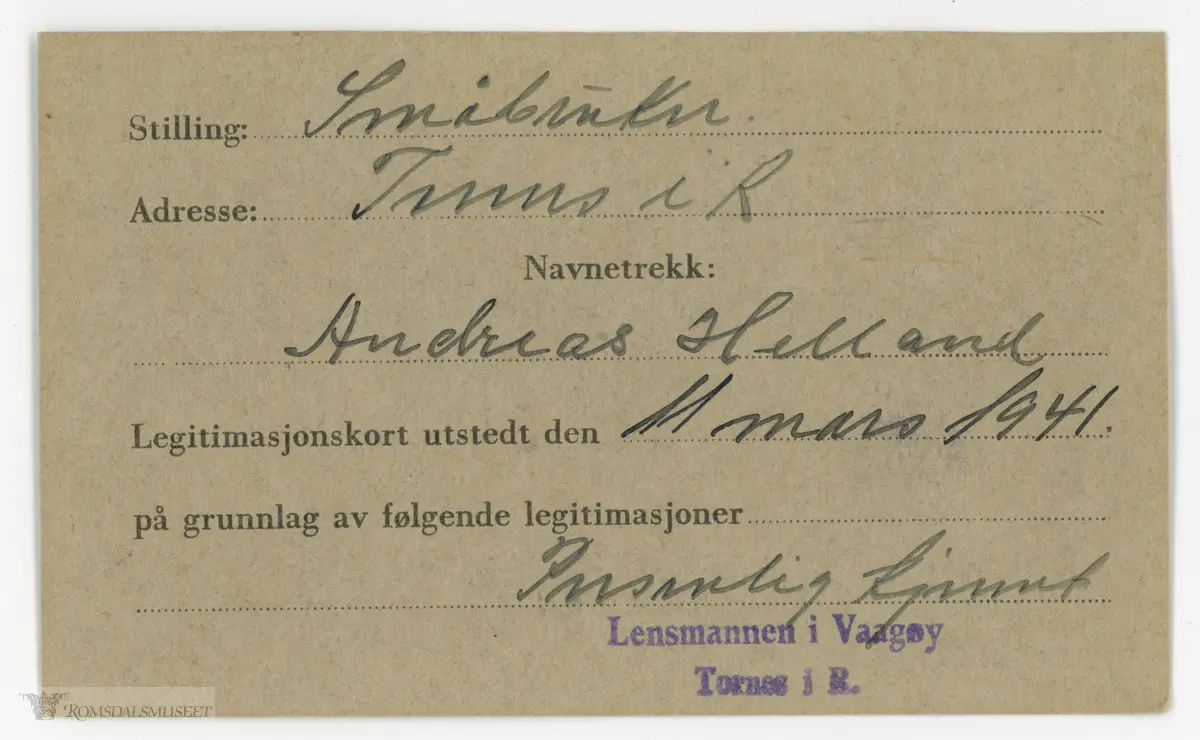 Stilling: Småbruker.
Adresse: Tornes i R
Navnetrekk:
Andreas Helland
Legitimasjonskort utstedt den 11 mars 1941.
på grunnlag av følgende legitimasjoner
Personlig kjennt
Lensmannen i Vaagøy
Tornes i R.
ROMSDALSMUSEET